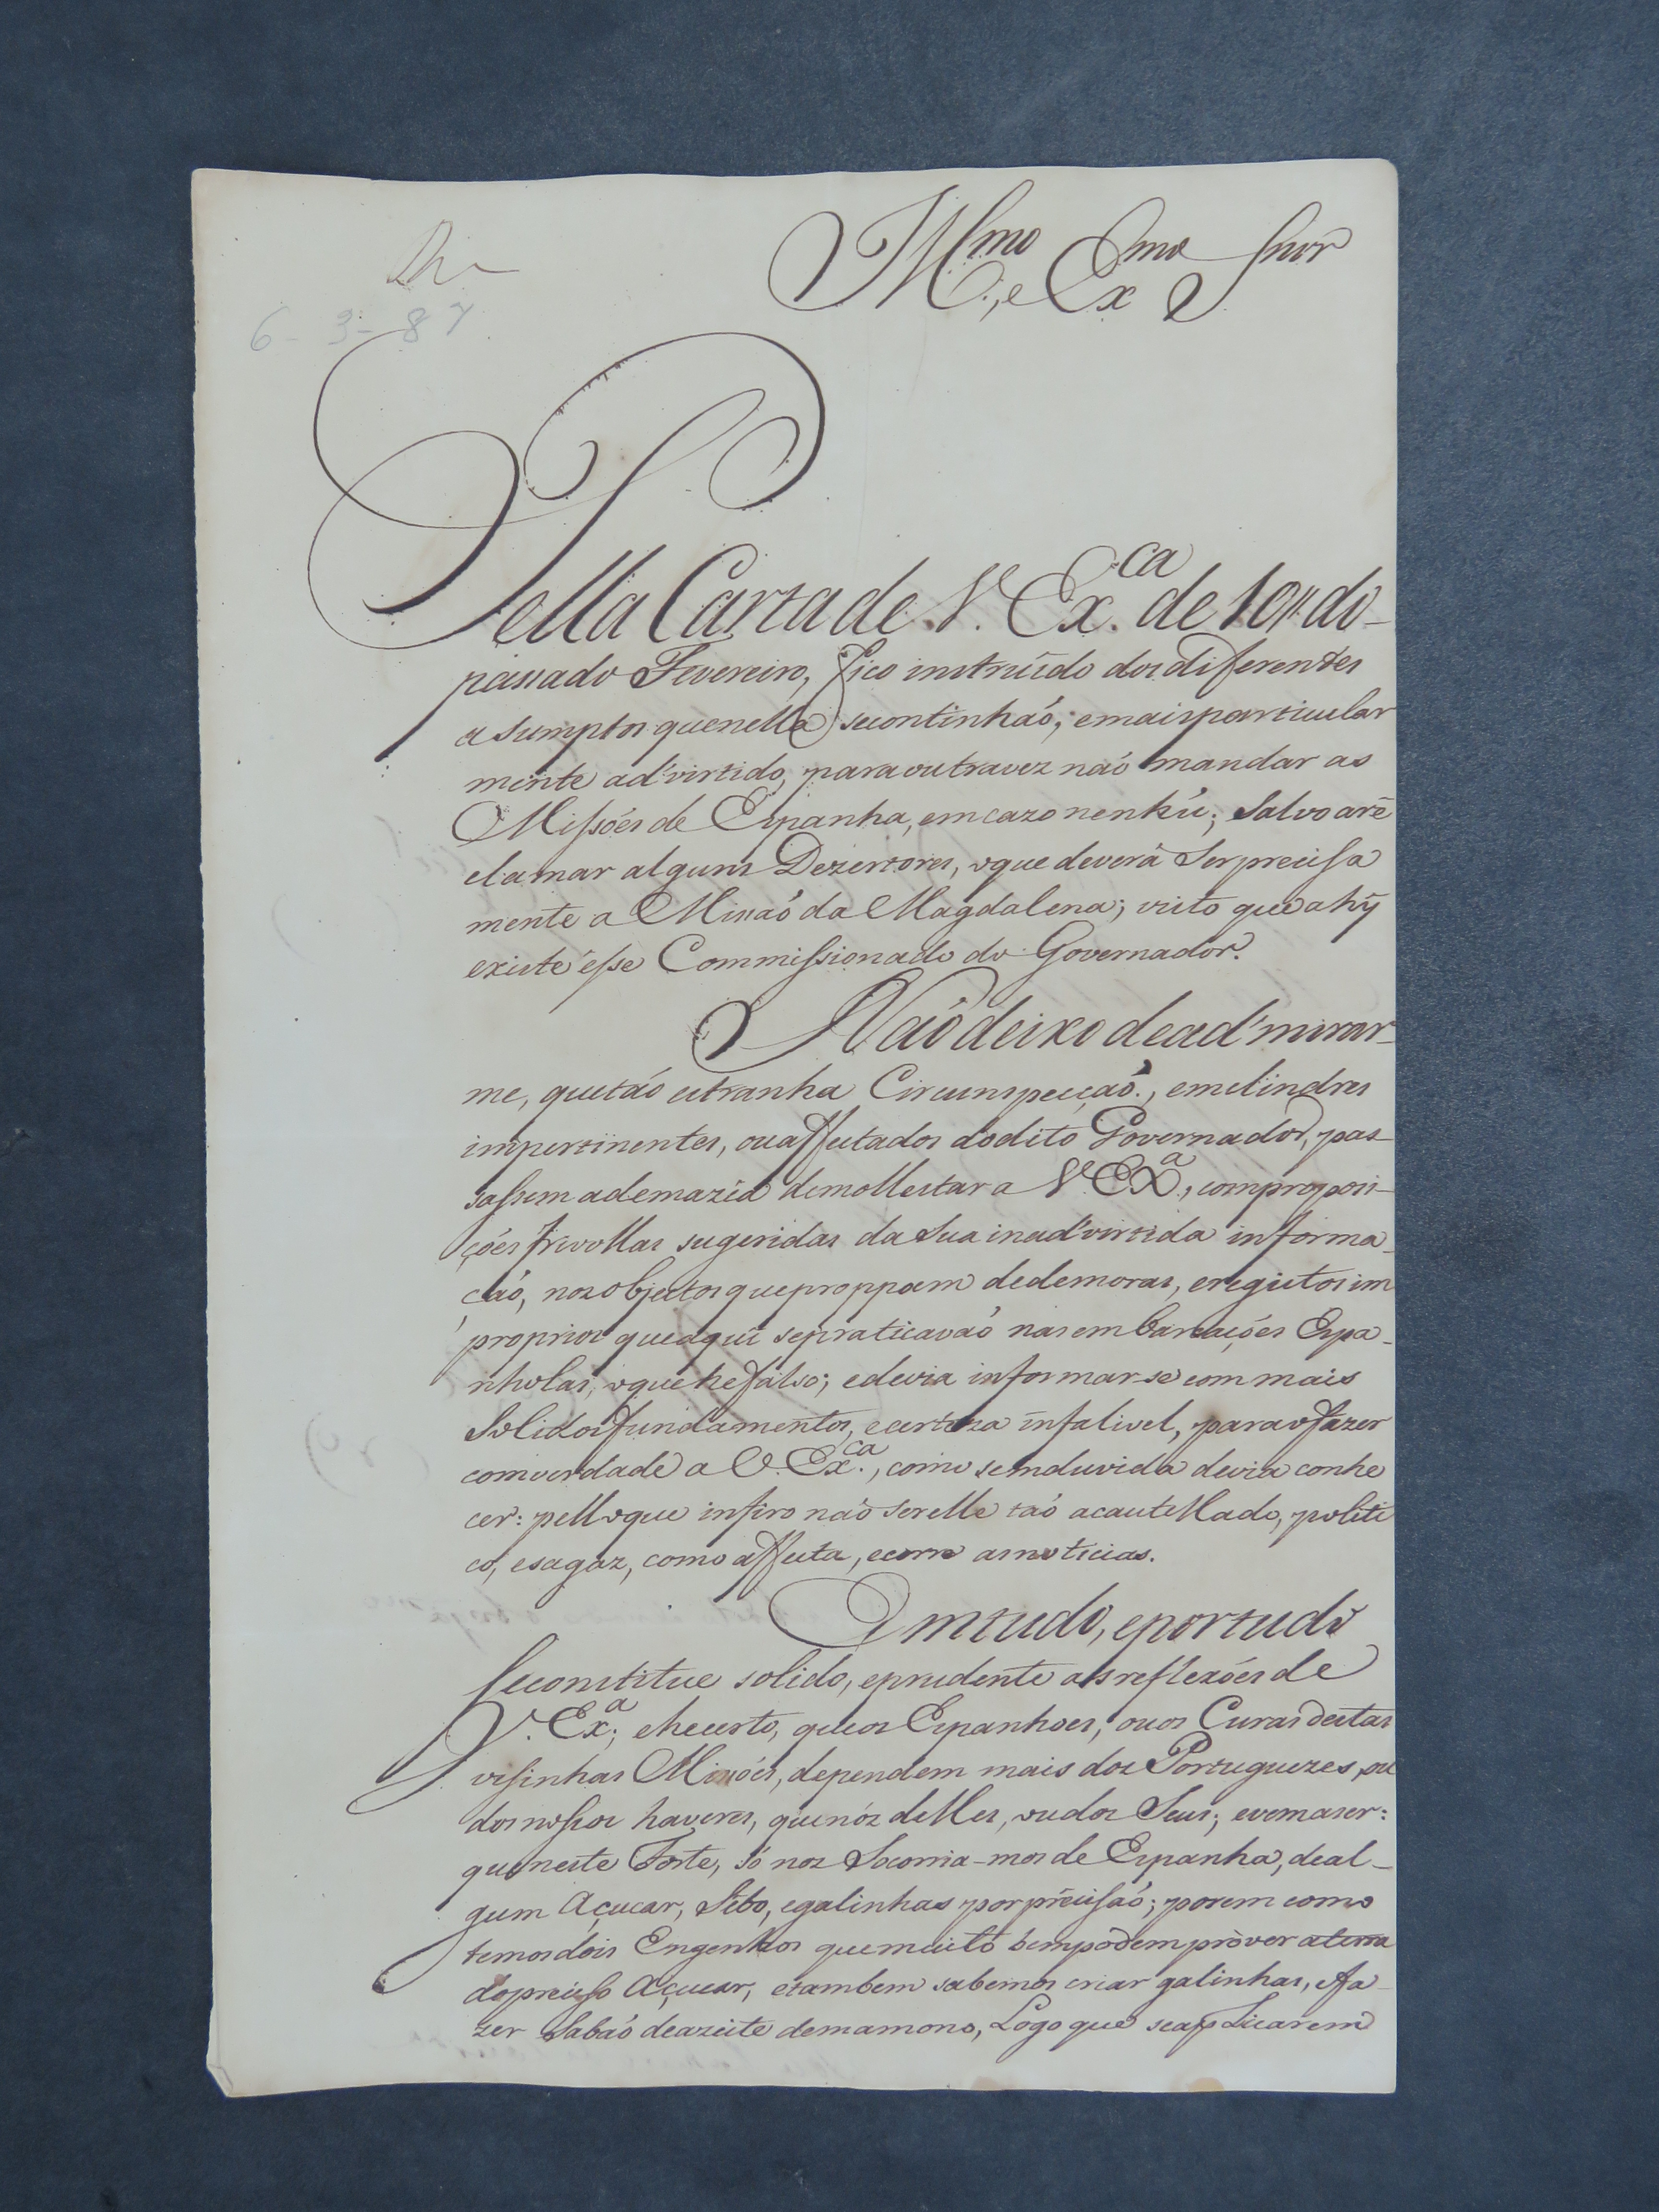 Illmo., e Exmo Snor
6-3-87
Pella Carta de V. Ex.ca de 10,, do
passado Fevereiro, fico instruído dos diferentes
asumptos que nella se continhaó; e mais particular
mente ad'virtido, para outra vez naó mandar as
Missões de Espanha, em cazo nenhú; Salvo a rē
clamar alguns Dezertores, o que deverá Ser precisa
mente a Missaó da Magdalena; visto que ahÿ
existe ésse Commissionado do Governador.
Naó deixo de ad'mirar-
me, que táo estranha Circunspecçaó., e melindres
impertinentes, ou affectados do dito Governador, pas-
sassem a demazia de mollestar a V. EX.a, com proposi-
ções frivollas sugeridas da Sua inad'virtida informa-
çaó, nos objectos que proppam de demoras, e registos im
proprios que aqui se praticavaó nas embarcações Espa-
nholas, o que he falso; e devia informar-se com mais
Solidos fundamentos, e certeza infalivel, para o fazer
com verdade a V. Ex.ca, como sem duvida devia conhe
cer: pello que infiro naó Ser elle taó acautellado, politi
co, e sagaz, como affecta, e corre as noticias.
Em tudo, e por tudo
Se constitue solido, e prudente as reflexões de
V. Ex.a; e he certo, que os Espanhoes, ou os Curas destas
visinhas Missões, dependem mais dos Portuguezes, ou
dos nossos haveres, que nós delles, ou dos Seus; e vem a ser:
que neste Forte, só nos Socorria-mos de Espanha, de al-
gum Açucar, Sebo, e galinhas por precisaó; porem como
temos dois Engenhos que muito bem podem prover a terra
do preciso Açucar, e tambem sabemos criar galinhas, e fa-
zer Sabaó de azeite de mamono, Logo que se applicarem